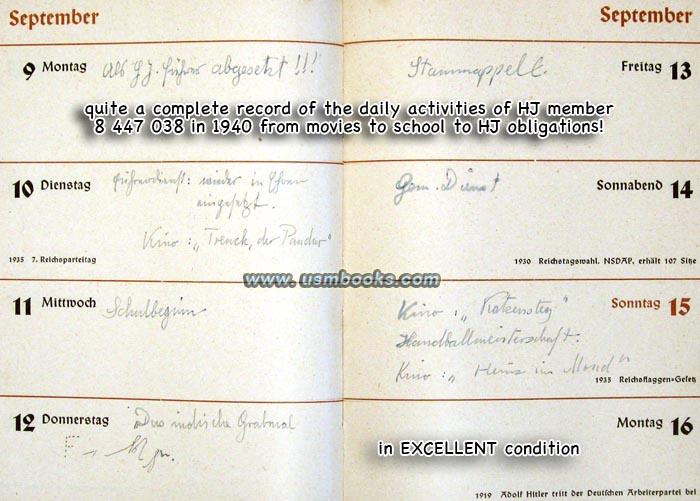 September
9 Montag
Als H.J. Führer abgesetzt !!!
quite a complete record of the daily activities of HJ member
8 447 038 in 1940 from movies to school to HJ obligations!
10 Dienstag
Führerdienst: wieder in Ehren
eingesetzt.
Kino: „Trenck, der Pandur"
1935 7. Reichsparteitag
www.usmbooks.com
11 Mittwoch
Schulbeginn
12 Donnerstag
„Das indische Grabmal
September
Freitag 13
Stammappell.
Sonnabend 14
Gem. Dienst
1930 Reichstagswahl. NSDAP. erhält 107 Sitze
Sonntag 15
Kino: „Katzensteg"
Handballmeisterschaft.
Kino: „Heinz im Mond"
1935 Reichsflaggen-Gesetz
Montag 16
in EXCELLENT condition
1919 Adolf Hitler tritt der Deutschen Arbeiterpartei bei